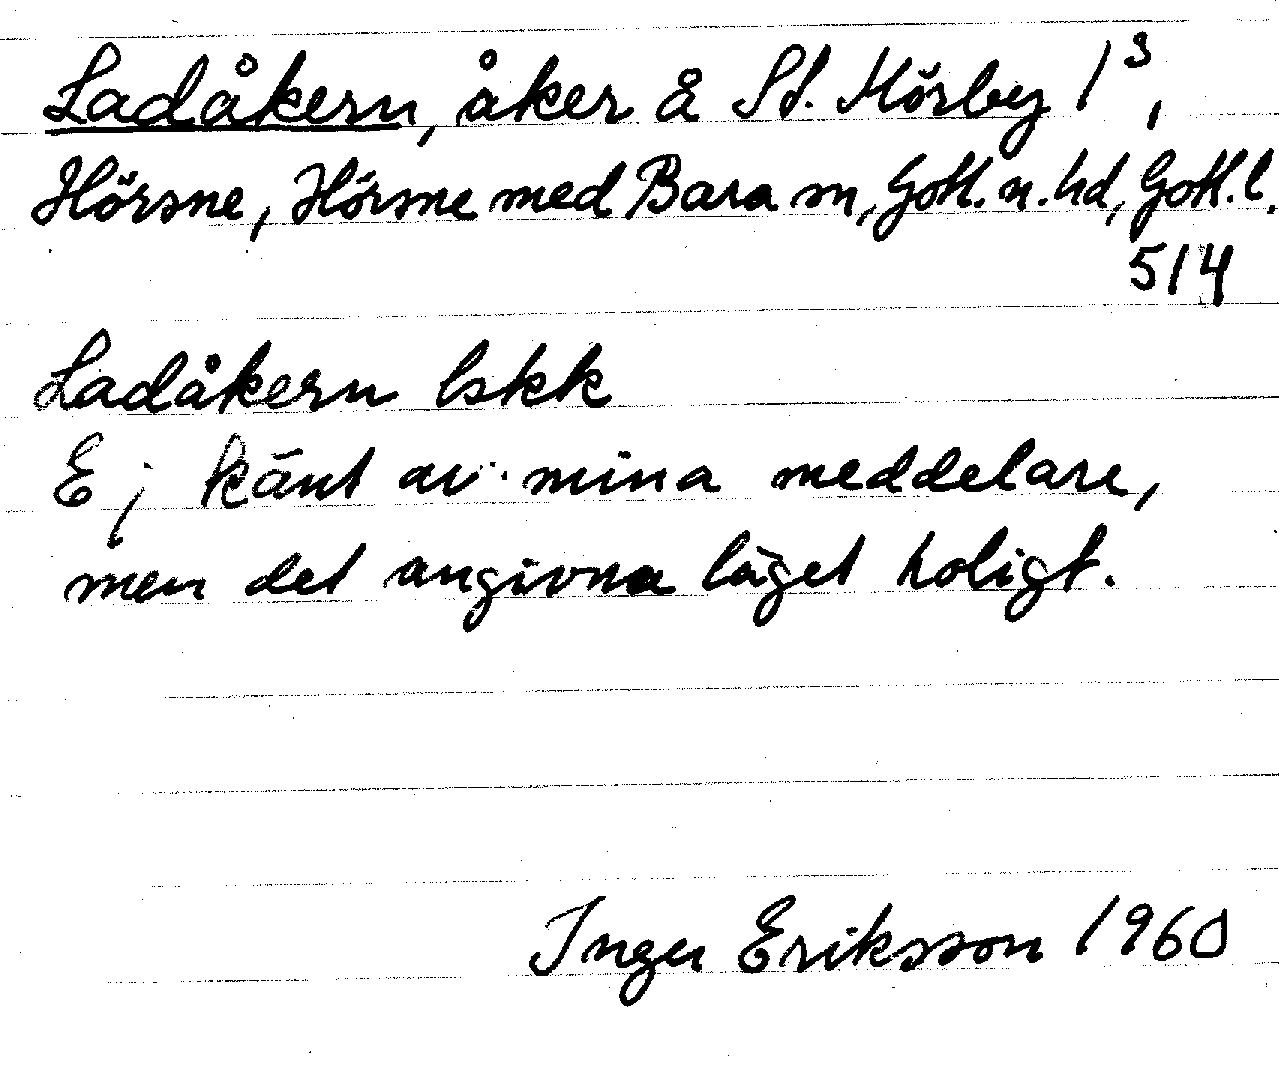 Ladåkern, åker å St. Hörby 1³,
Hörsne, Hörsne med Bara sn, Gotl. n. hd, Gotl. l.
514
Ladåkern lskk
Ej känt av mina meddelare,
men det angivna läget troligt.
Inger Eriksson 1960